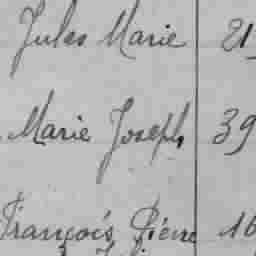 Jules Marie 21
Marie Joseph 39
François Piérre 16